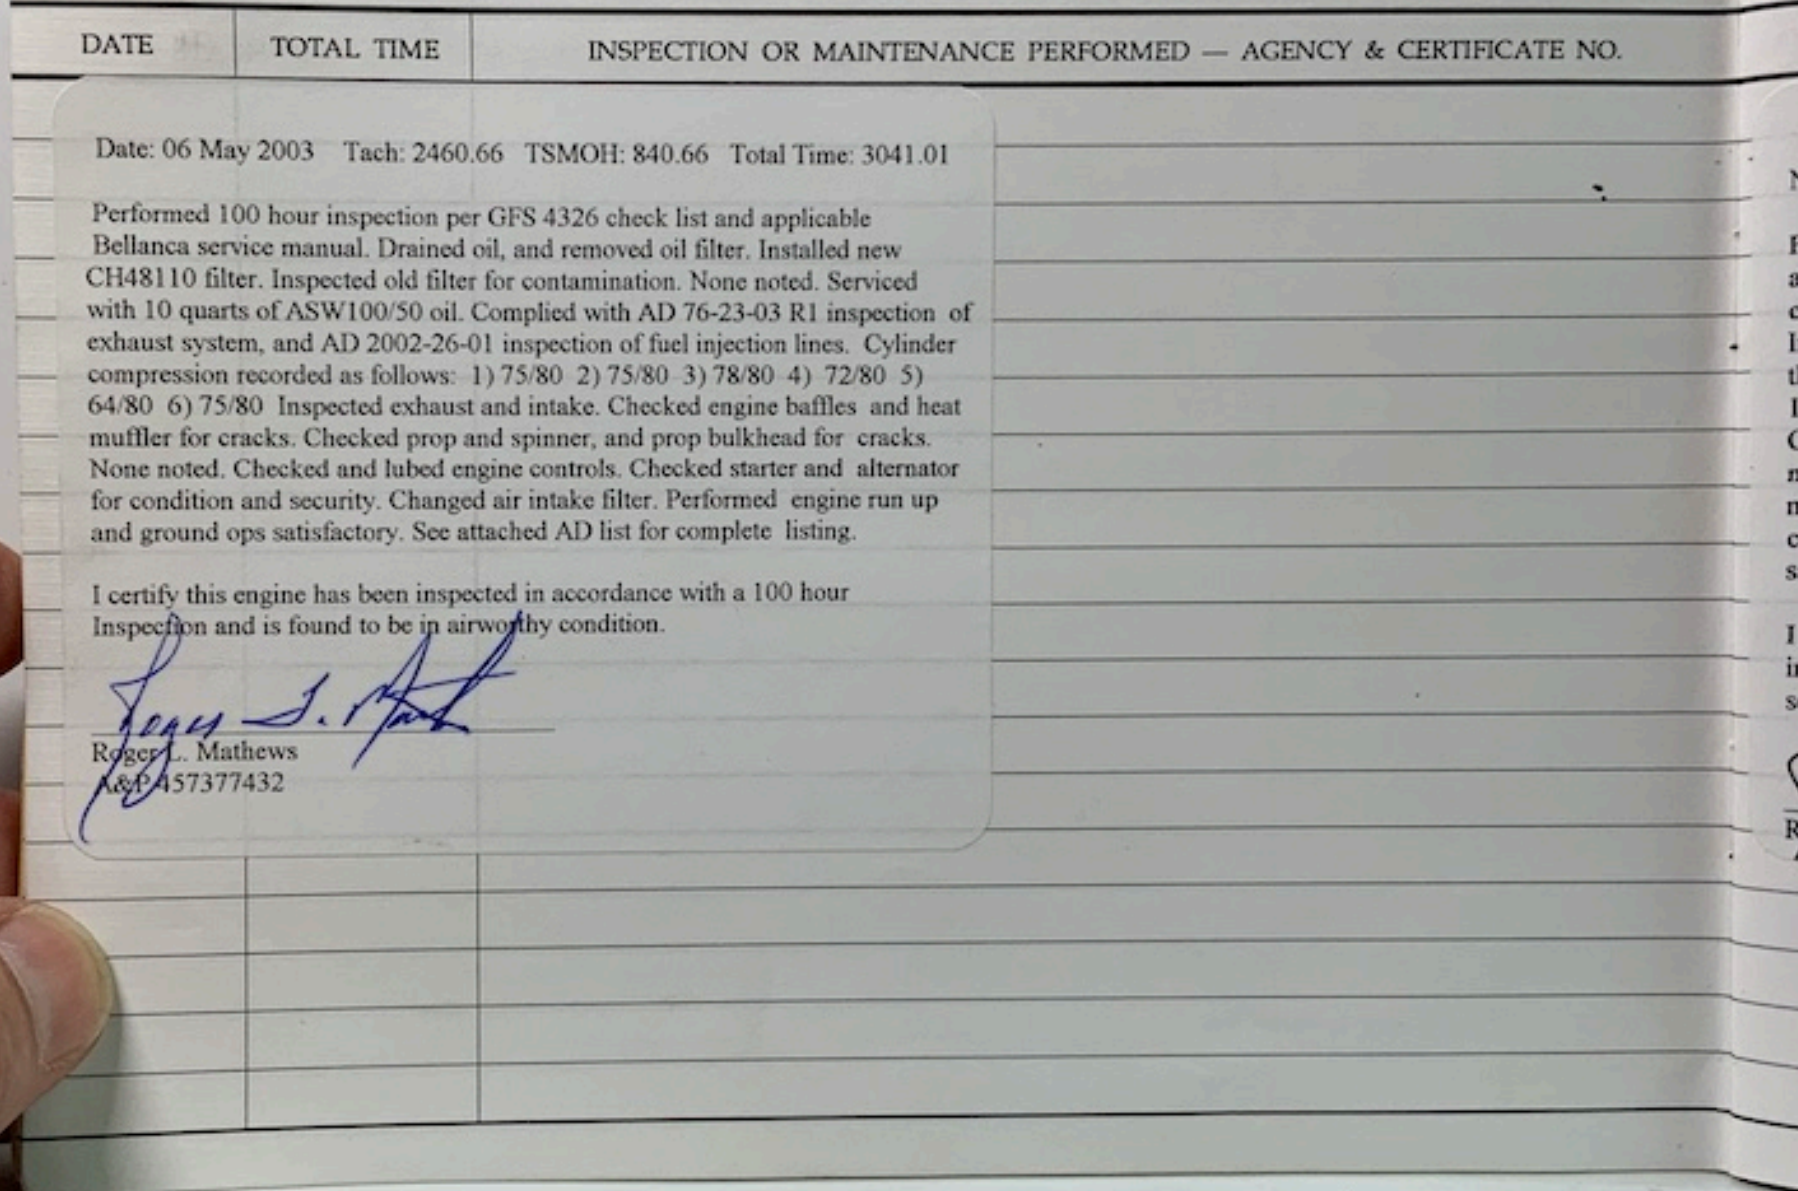 DATE TOTAL TIME INSPECTION OR MAINTENANCE PERFORMED — AGENCY & CERTIFICATE NO.
Date: 06 May 2003 Tach: 2460.66 TSMOH: 840.66 Total Time: 3041.01
Performed 100 hour inspection per GFS 4326 check list and applicable
Bellanca service manual. Drained oil, and removed oil filter. Installed new
CH48110 filter. Inspected old filter for contamination. None noted. Serviced
with 10 quarts of ASW100/50 oil. Complied with AD 76-23-03 R1 inspection of
exhaust system, and AD 2002-26-01 inspection of fuel injection lines. Cylinder
compression recorded as follows: 1) 75/80 2) 75/80 3) 78/80 4) 72/80 5)
64/80 6) 75/80 Inspected exhaust and intake. Checked engine baffles and heat
muffler for cracks. Checked prop and spinner, and prop bulkhead for cracks.
None noted. Checked and lubed engine controls. Checked starter and alternator
for condition and security. Changed air intake filter. Performed engine run up
and ground ops satisfactory. See attached AD list for complete listing.
I certify this engine has been inspected in accordance with a 100 hour
Inspection and is found to be in airworthy condition.
Roger L. Mathews
A&P 457377432